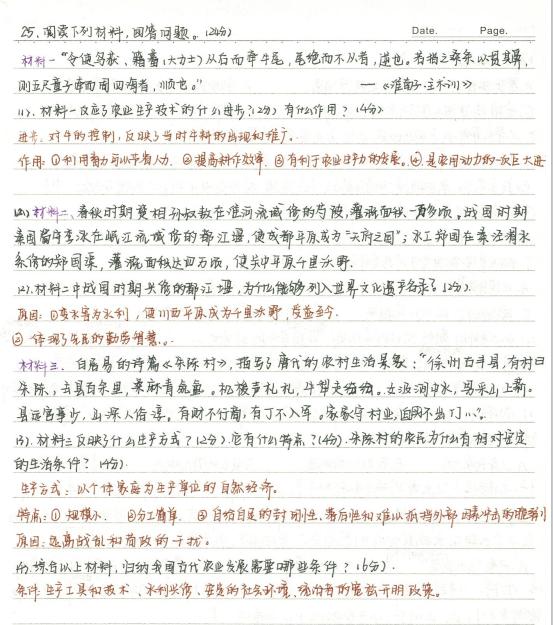 25. 阅读下列材料,回答问题。(24分)
Date. Page.
材料一 "今使乌获、籍蕃(大力士)从后而牵牛尾,尾绝而不从者,逆也。若指之桑条以贯其鼻,
则五尺童子牵而周四海者,顺也。" —《淮南子·主术训》
(1). 材料一反应了农业生产技术的什么进步?(2分) 有什么作用?(4分)
进步: 对牛的控制,反映了当时牛耕的出现和推广。
作用: ①利用畜力可以节省人力. ②提高耕作效率. ③有利于农业生产力的发展。④.是农用动力的一次巨大进
材料二、春秋时期楚相孙叔敖在淮河流域修的芍陂,灌溉面积一万多顷。战国时期
秦国蜀守李冰在岷江流域修的都江堰,使成都平原成为"天府之国";水工郑国在秦泾渭水
系修的郑国渠,灌溉面积达四万顷,使关中平原千里沃野.
(2). 材料二中战国时期兴修的都江堰,为什么能够列入世界文化遗产名录?(2分).
原因: ①变水害为水利,使川西平原成为千里沃野,受益至今.
② 体现了先民的勤劳智慧。.
材料三. 白居易的诗篇《朱陈村》,描写了唐代的农村生活景象:"徐州古丰县,有村曰
朱陈,去县百余里,桑麻青氛氲。机梭声札札,牛驴走纭纭。女汲涧中水,男采山上薪。
县远官事少,山深人俗淳。有财不行商,有丁不入军。家家守村业,头白不出门……"。
(3). 材料三反映了什么生产方式?(2分).它有什么特点?(4分).朱陈村的农民为什么有相对安定
的生活条件?(4分).
生产方式:以个体家庭为生产单位的自然经济。
特点:① 规模小. ②分工简单. ③ 自给自足的封闭性、落后性和难以抵挡外部因素冲击的脆弱性
原因:远离战乱和苛政的干扰。
(4). 综合以上材料,归纳我国古代农业发展需要哪些条件?(6分).
条件:生产工具和技术、水利兴修、安定的社会环境、统治者的宽松开明政策。